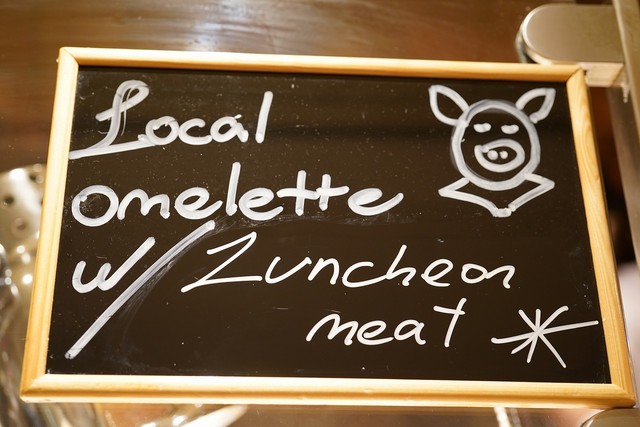 Local
omelette
w/ Luncheon
meat *